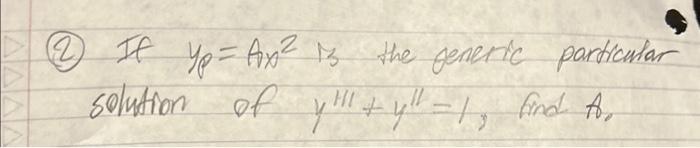 ② If yp = Ax² is the generic particular
solution of y''' + y'' = 1, find A.